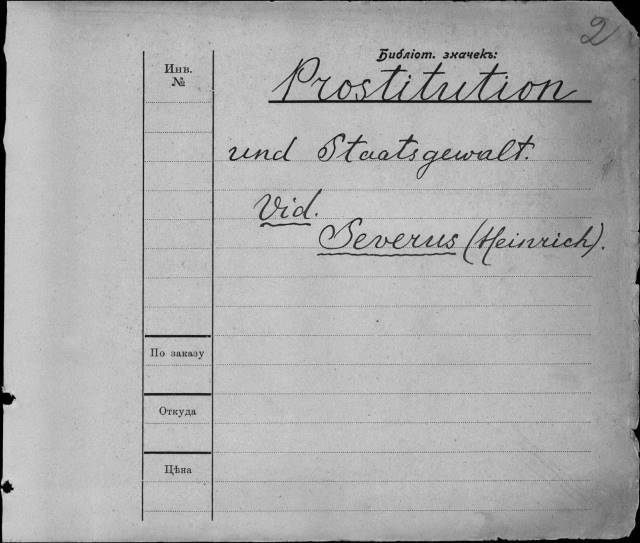 2
Библіот. значекъ:
Инв.
№
Prostitution
und Staatsgewalt.
Vid.
Severus (Heinrich).
По заказу
Откуда
Цѣна